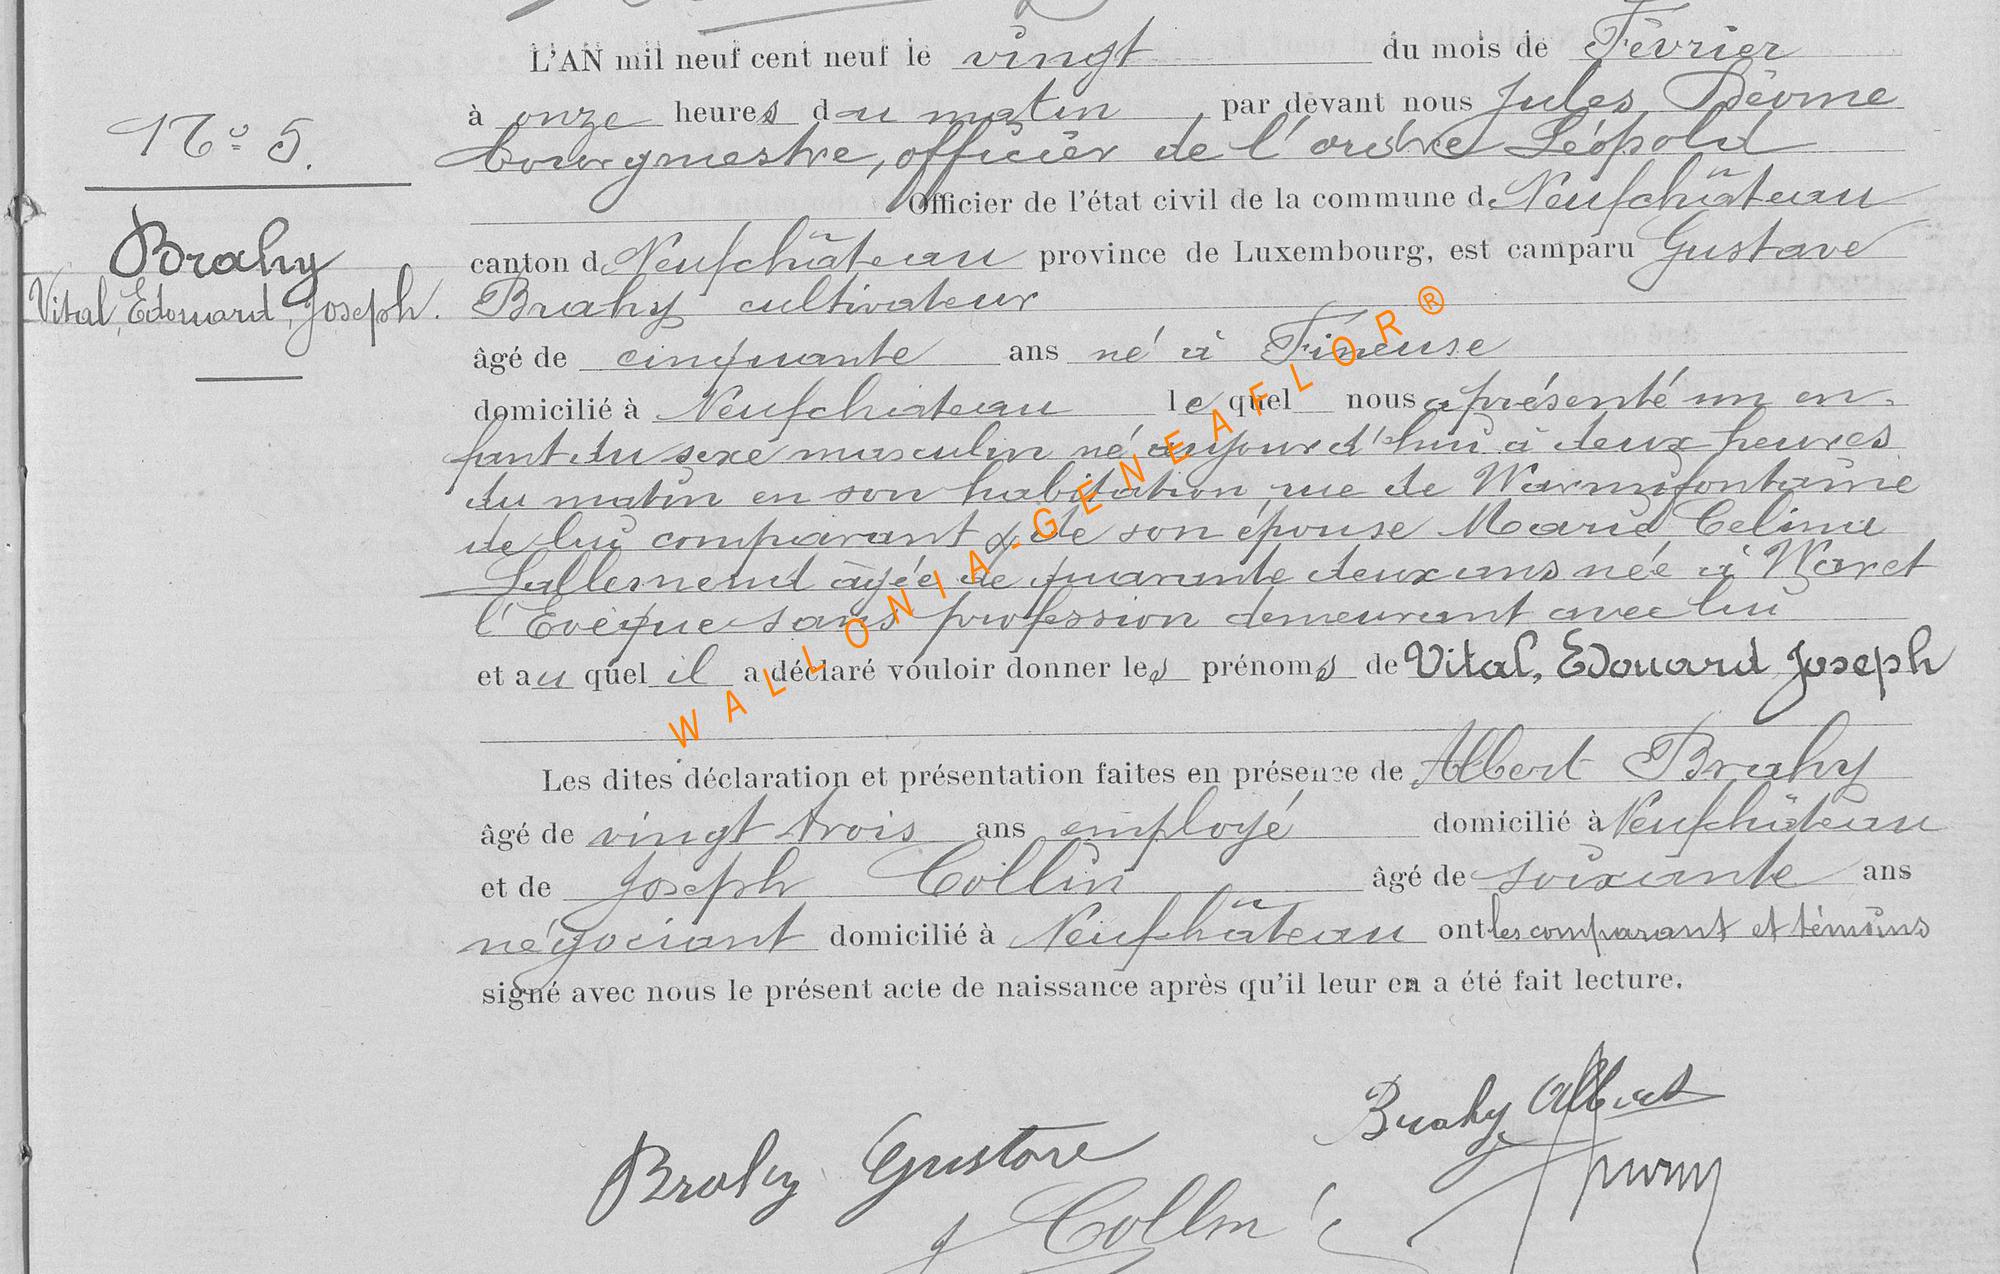 L'AN mil neuf cent neuf le vingt du mois de Février
à onze heures du matin par devant nous Jules
bourgmestre, officier de l'ordre Léopold
Officier de l'état civil de la commune de Neufchâteau
canton de Neufchâteau province de Luxembourg, est comparu Gustave
Brahy cultivateur
âgé de cinquante ans né à Fineuse
domicilié à Neufchateau lequel nous a présenté un en-
fant du sexe masculin né aujourd'hui à deux heures
du matin en son habitation rue de Warmifontaine
de lui comparant & de son épouse Marie Celina
Lallemend âgée de quarante deux ans née à Waret
l'Evèque sans profession demeurant avec lui
et au quel il a déclaré vouloir donner les prénoms de Vital, Edouard Joseph
Les dites déclaration et présentation faites en présence de Albert Brahy
âgé de vingt trois ans employé domicilié à Neufchâteau
et de Joseph Collin âgé de soixante ans
négociant domicilié à Neufchâteau ont les comparant et témoins
signé avec nous le présent acte de naissance après qu'il leur en a été fait lecture.
N° 5.
Brahy
Vital, Edouard, Joseph.
Brahy Gustave
Brahy Albert
J Collin
WALLONIA-GENEAFLOR®